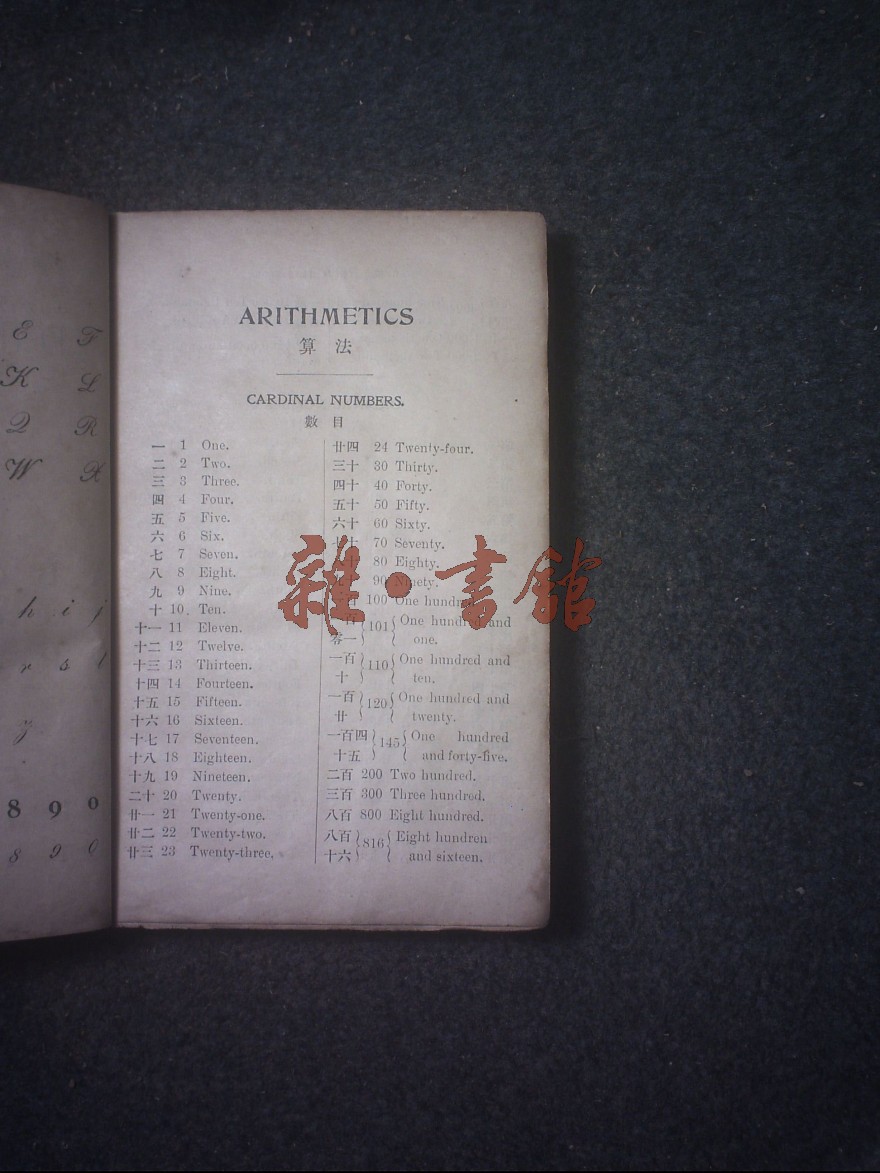 E F
K L
Q R
W X
h i j
r s t
z
8 9 0
8 9 0
ARITHMETICS
算 法
CARDINAL NUMBERS.
數 目
一 1 One.
二 2 Two.
三 3 Three.
四 4 Four.
五 5 Five.
六 6 Six.
七 7 Seven.
八 8 Eight.
九 9 Nine.
十 10. Ten.
十一 11 Eleven.
十二 12 Twelve.
十三 13 Thirteen.
十四 14 Fourteen.
十五 15 Fifteen.
十六 16 Sixteen.
十七 17 Seventeen.
十八 18 Eighteen.
十九 19 Nineteen.
二十 20 Twenty.
廿一 21 Twenty-one.
廿二 22 Twenty-two.
廿三 23 Twenty-three.
廿四 24 Twenty-four.
三十 30 Thirty.
四十 40 Forty.
五十 50 Fifty.
六十 60 Sixty.
十 70 Seventy.
80 Eighty.
90 Ninety.
100 One hundred
101 One hundred and
零一 one.
一百 110 One hundred and
十 ten.
一百 120 One hundred and
廿 twenty.
一百四 145 One hundred
十五 and forty-five.
二百 200 Two hundred.
三百 300 Three hundred.
八百 800 Eight hundred.
八百 816 Eight hundren
十六 and sixteen.
雜·書館